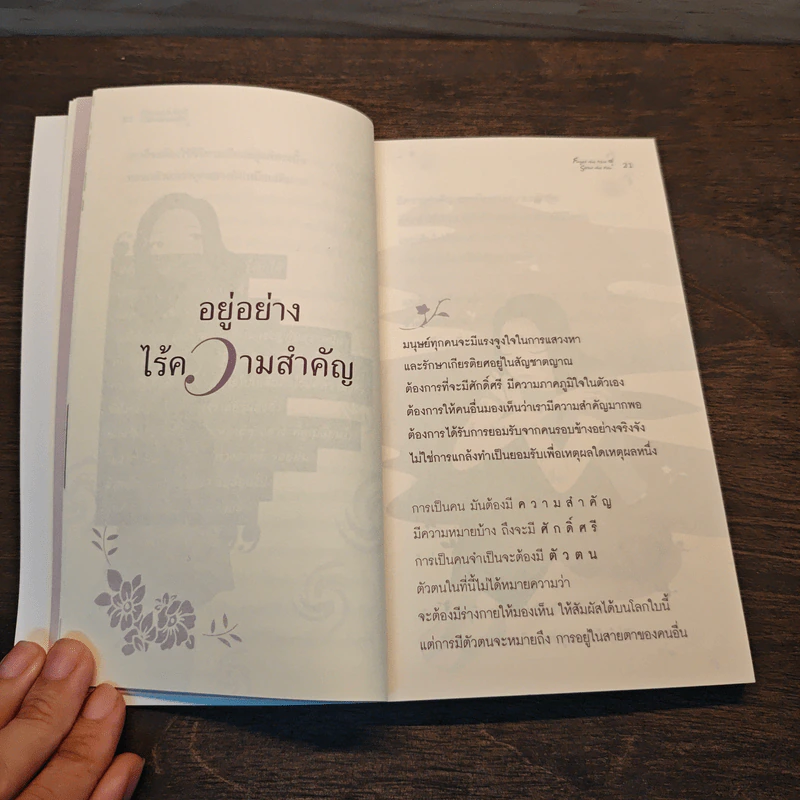 อยู่อย่าง
ไร้ความสำคัญ
22
มนุษย์ทุกคนจะมีแรงจูงใจในการแสวงหา
และรักษาเกียรติยศอยู่ในสัญชาตญาณ
ต้องการที่จะมีศักดิ์ศรี มีความภาคภูมิใจในตัวเอง
ต้องการให้คนอื่นมองเห็นว่าเรามีความสำคัญมากพอ
ต้องการได้รับการยอมรับจากคนรอบข้างอย่างจริงจัง
ไม่ใช่การแกล้งทำเป็นยอมรับเพื่อเหตุผลใดเหตุผลหนึ่ง
การเป็นคน มันต้องมี ค ว า ม สำ คั ญ
มีความหมายบ้าง ถึงจะมี ศั ก ดิ์ ศ รี
การเป็นคนจำเป็นจะต้องมี ตั ว ต น
ตัวตนในที่นี้ไม่ได้หมายความว่า
จะต้องมีร่างกายให้มองเห็น ให้สัมผัสได้บนโลกใบนี้
แต่การมีตัวตนจะหมายถึง การอยู่ในสายตาของคนอื่น